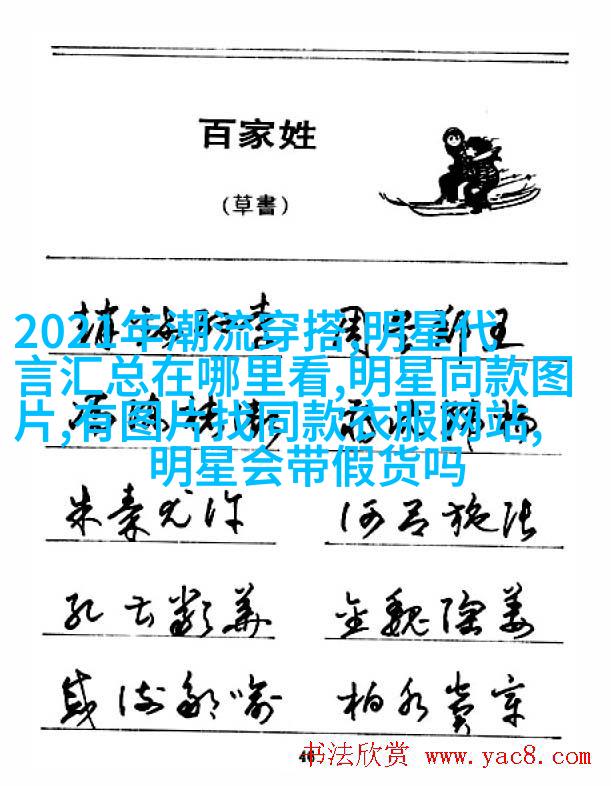 百家姓
(草書)
2021年潮流穿搭,明星代
言汇总在哪里看,明星同款图
片,有图片找同款衣服网站,
明星会带假货吗
朱秦尤许 何吕施张
孔曹严华 金魏陶姜
戚谢邹喻 柏水窦章
46
书法欣赏 www.yac8.com